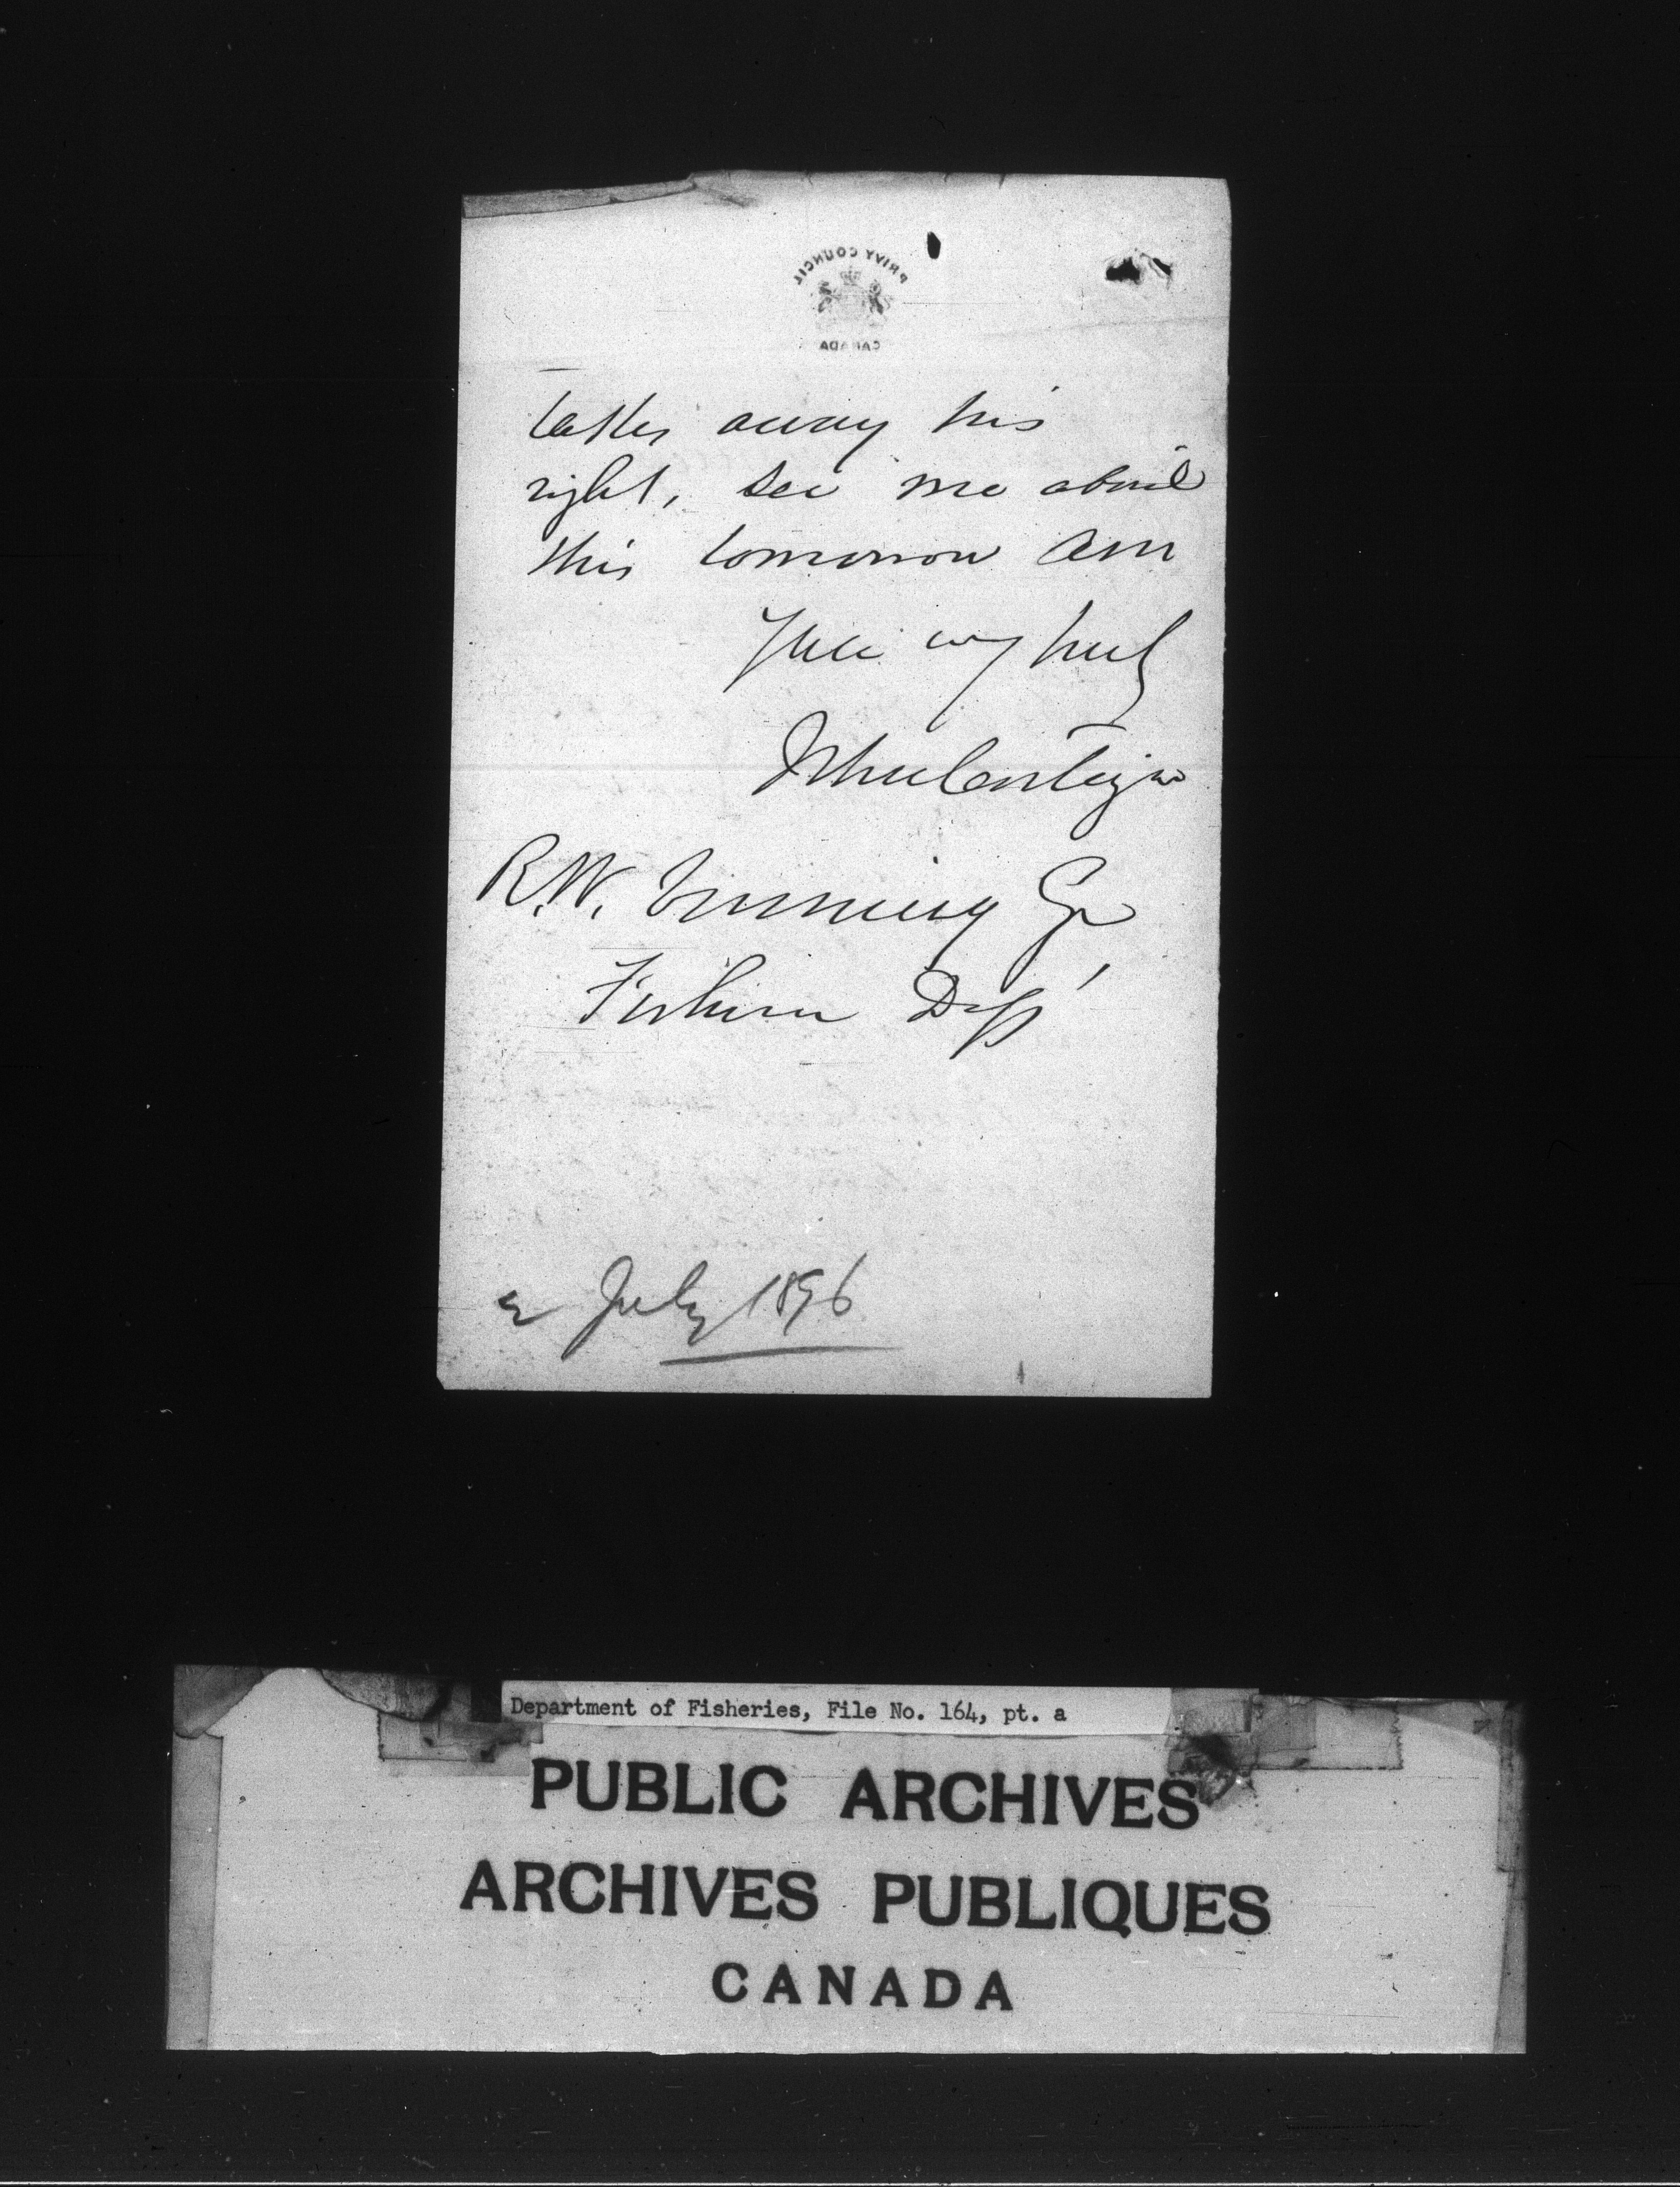 PRIVY COUNCIL
CANADA
takes away his
right, see me about
this tomorrow am
Yours very truly
John Costigan
R.W. Venning Esq
Fisheries Dept
2 July 1896
Department of Fisheries, File No. 164, pt. a
PUBLIC ARCHIVES
ARCHIVES PUBLIQUES
CANADA